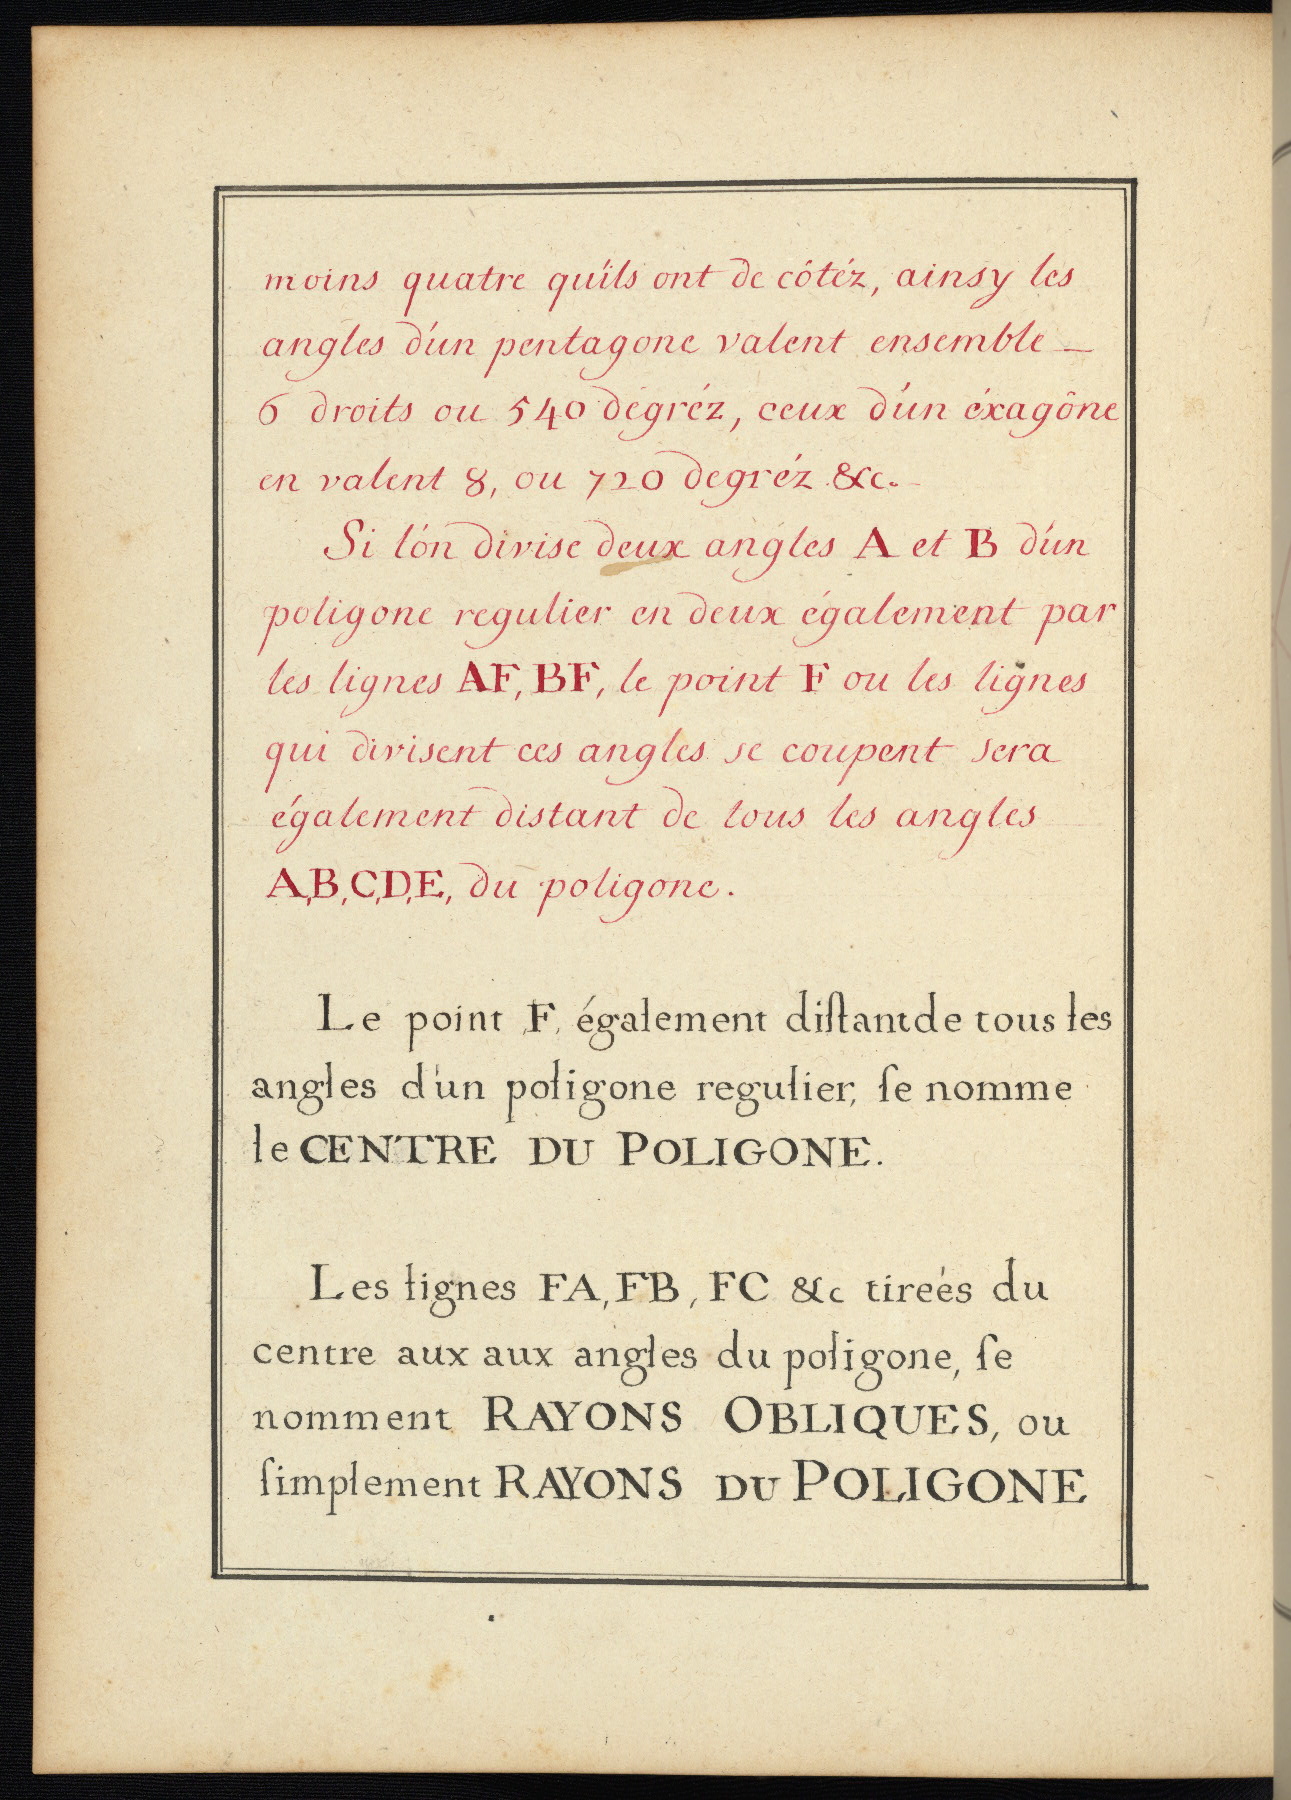 moins quatre qu'ils ont de côtéz, ainsy les
angles d'un pentagone valent ensemble _
6 droits ou 540 dégréz, ceux d'un éxagône
en valent 8, ou 720 degréz &c.
Si l'on divise deux angles A et B d'un
poligone regulier en deux également par
les lignes AF, BF, le point F ou les lignes
qui divisent ces angles se coupent sera
également distant de tous les angles
A,B,C,D,E, du poligone.
Le point F, également diſtant de tous les
angles d'un poligone regulier, ſe nomme
le CENTRE DU POLIGONE.
Les lignes FA, FB, FC &c tireés du
centre aux aux angles du poligone, ſe
nomment RAYONS OBLIQUES, ou
ſimplement RAYONS DU POLIGONE